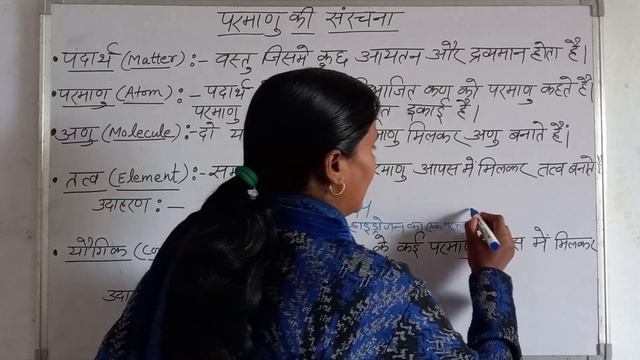 परमाणु की संरचना
• पदार्थ (Matter) :- वस्तु जिसमे कुछ आयतन और द्रव्यमान होता है।
• परमाणु (Atom) :- पदार्थ कण को परमाणु कहते है।
परमाणु इकाई है।
• अणु (Molecule) :- दो मिलकर अणु बनाते है।
• तत्व (Element) :- आपस में मिलकर तत्व बनाते
उदाहरण : - H
हाइड्रोजन का
• यौगिक के कई में मिलकर